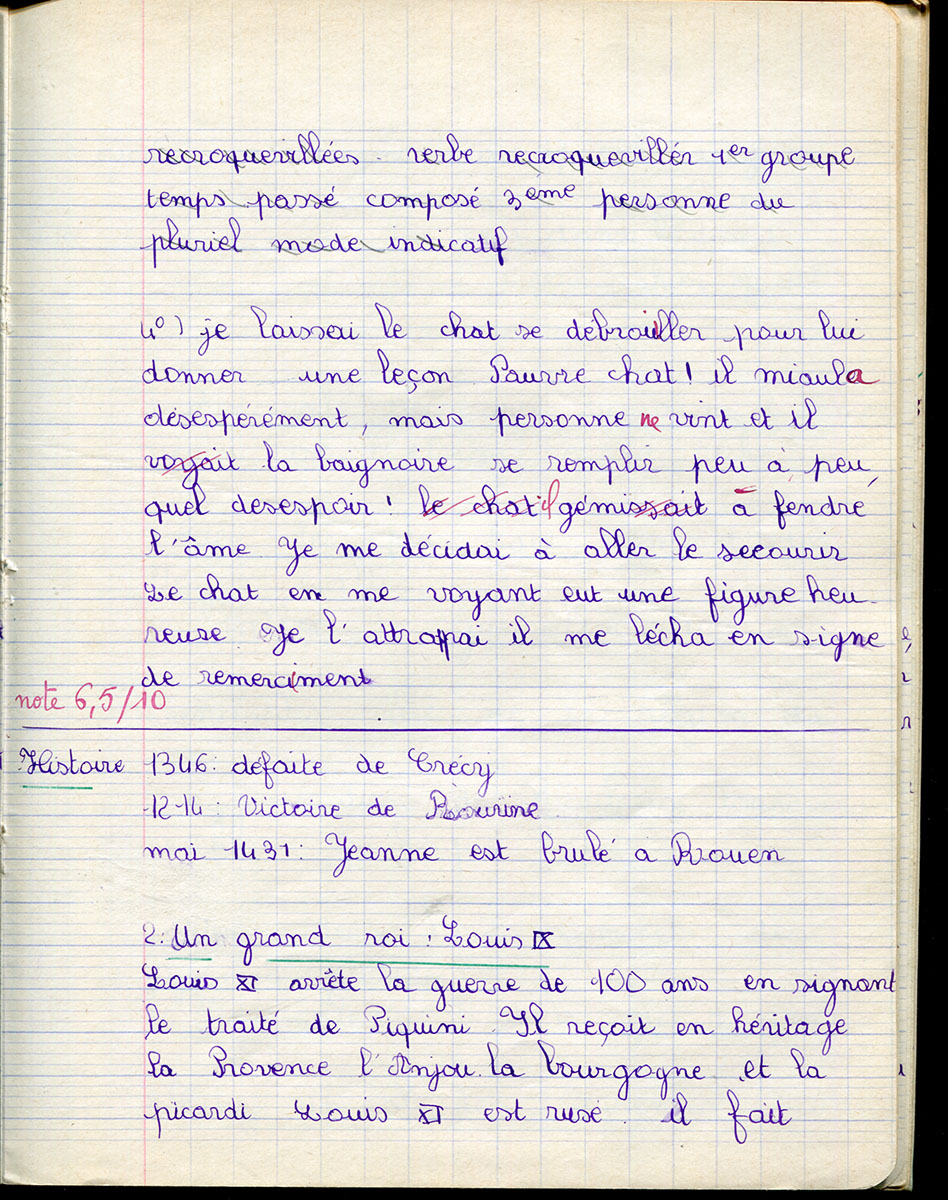 recroquevillées. verbe recroquevillér 1er groupe
temps passé composé 3ème personne du
pluriel mode indicatif
4°) je laissai le chat se débrouiller pour lui
donner une leçon Pauvre chat! il miaula
désespérément, mais personne ne vint et il
voyait la baignoire se remplir peu à peu
quel desespoir! le chat il gémissait à fendre
l'âme Je me décidai à aller le secourir
Le chat en me voyant eut une figure heu-
reuse Je l'attrapai il me lécha en signe
de remerciment
note 6,5/10
Histoire 1346: défaite de Crécy
1214: Victoire de
mai 1431: Jeanne est brulé a Rouen
2: Un grand roi: Louis IX
Louis XI arrête la guerre de 100 ans en signant
le traité de Piquini Il reçoit en héritage
la Provence l'Anjou la bourgogne et la
picardi Louis XI est rusé il fait